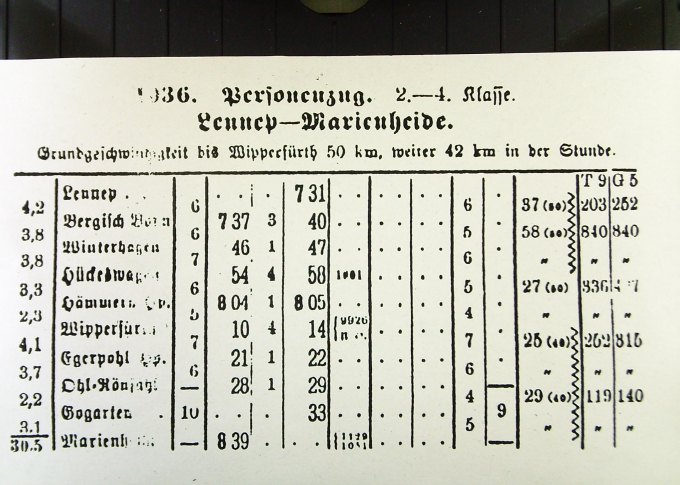 1936. Personenzug. 2.—4. Klasse.
Lennep—Marienheide.
Grundgeschwindigkeit bis Wipperfürth 50 km, weiter 42 km in der Stunde.
T 9 G 5
Lennep . . . 7 31 . . . .
4,2 6 6 . 37 (50) 203 252
Bergisch Born 7 37 3 40 . . . .
3,8 6 5 . 58 (50) 840 840
Winterhagen 46 1 47 . . . .
3,8 7 6 . " " "
Hückeswagen 54 4 58 1001 . . .
3,3 6 5 . 27 (50) 336
Hämmern Hp. 8 04 1 8 05 . . . .
2,3 5 4 . " " "
Wipperfürth 10 4 14 { 9926 . . .
4,1 7 7 . 25 (40) 252 315
Egerpohl Hp. 21 1 22 . . . .
3,7 6 6 . " " "
Ohl-Rönsahl — 28 1 29 . . . . —
2,2 4 29 (40) 119 140
Gogarten . 10 . . 33 . . . . 9
3,1 5 " " "
30.5 Marienheide — 8 39 . . { 1129 1051 . . . —